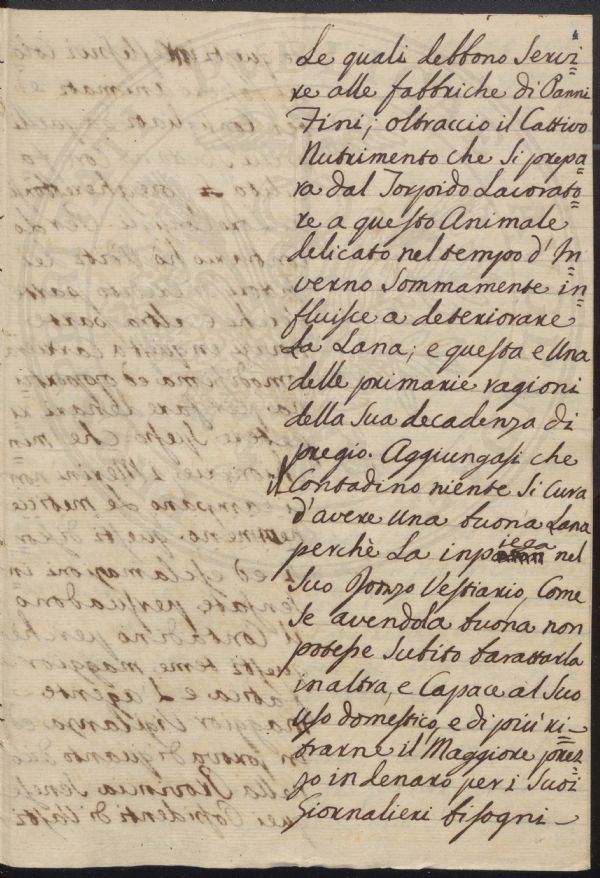 Le quali debbono Servi=
re alle fabbriche di Panni
Fini; oltracciò il Cattivo
Nutrimento che Si prepa=
ra dal Torpido Lavorato=
re a questo Animale
delicato nel tempo d' In=
verno Sommamente in=
fluisce a deteriorare
La Lana; e questa e Una
delle primarie ragioni
della Sua decadenza di
pregio. Aggiungasi che
il Contadino niente Si Cura
d'avere Una buona Lana
perchè La inpiega nel
Suo Vestiario, Come
Se avendola buona non
potesse Subito barattarla
in altra, e Capace al Suo
uso domestico, e di più ri=
trarne il Maggiore prez=
zo in denaro per i Suoi
Giornalieri bisogni —